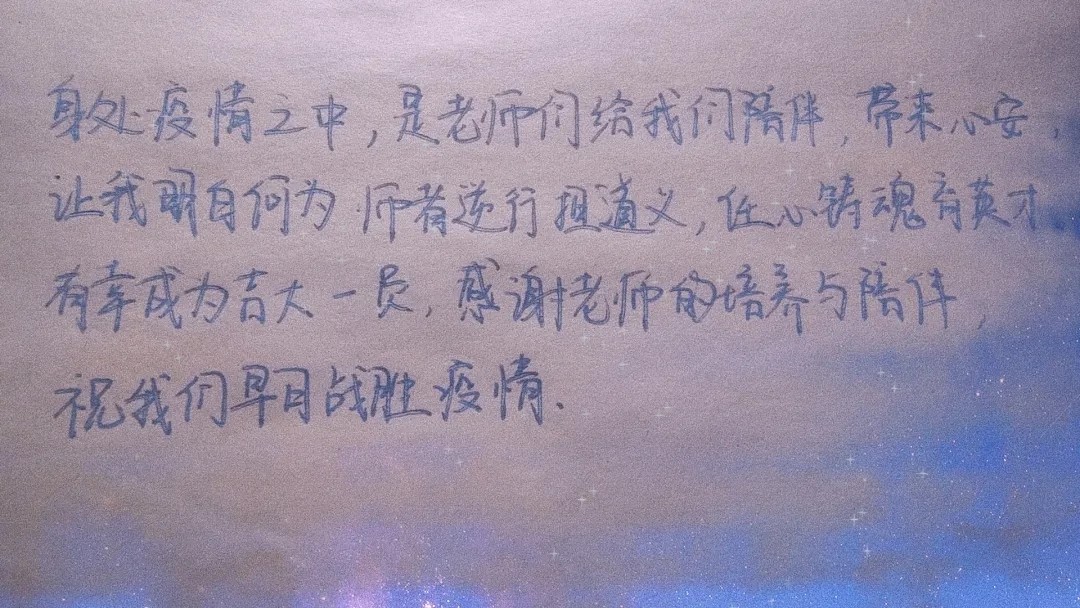 身处疫情之中,是老师们给我们陪伴,带来心安,
让我明白何为师者逆行担道义,任心铸魂育英才
有幸成为吉大一员,感谢老师的培养与陪伴,
祝我们早日战胜疫情.